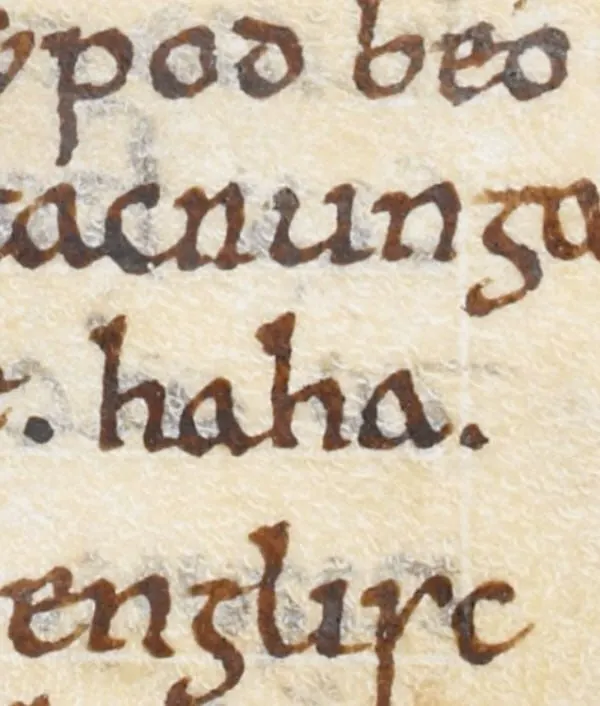 ypod beo
tacnunga
. haha.
englisc